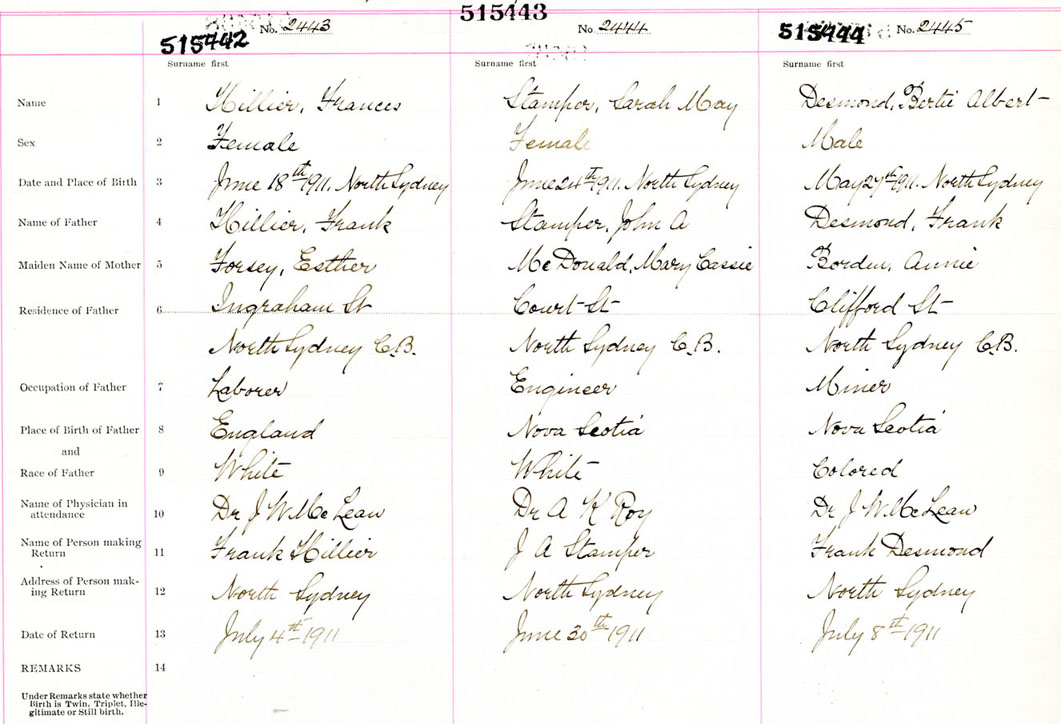 515443
No. 2443 No. 2444 No. 2445
515442 515444
Surname first Surname first Surname first
Name 1 Hillier, Frances Stamper, Sarah May Desmond, Bertie Albert
Sex 2 Female Female Male
Date and Place of Birth 3 June 18th 1911. North Sydney June 24th 1911. North Sydney May 27th 1911. North Sydney
Name of Father 4 Hillier, Frank Stamper, John A Desmond, Frank
Maiden Name of Mother 5 Forsey, Esther McDonald, Mary Cassie Borden, Annie
Residence of Father 6 Ingraham St Court St Clifford St
North Sydney C.B. North Sydney C.B. North Sydney C.B.
Occupation of Father 7 Laborer Engineer Miner
Place of Birth of Father 8 England Nova Scotia Nova Scotia
and
Race of Father 9 White White Colored
Name of Physician in
attendance 10 Dr J W McLean Dr A K Roy Dr J W McLean
Name of Person making
Return 11 Frank Hillier J A Stamper Frank Desmond
Address of Person mak-
ing Return 12 North Sydney North Sydney North Sydney
Date of Return 13 July 4th 1911 June 30th 1911 July 8th 1911
REMARKS 14
Under Remarks state whether
Birth is Twin, Triplet, Ille-
gitimate or Still birth.